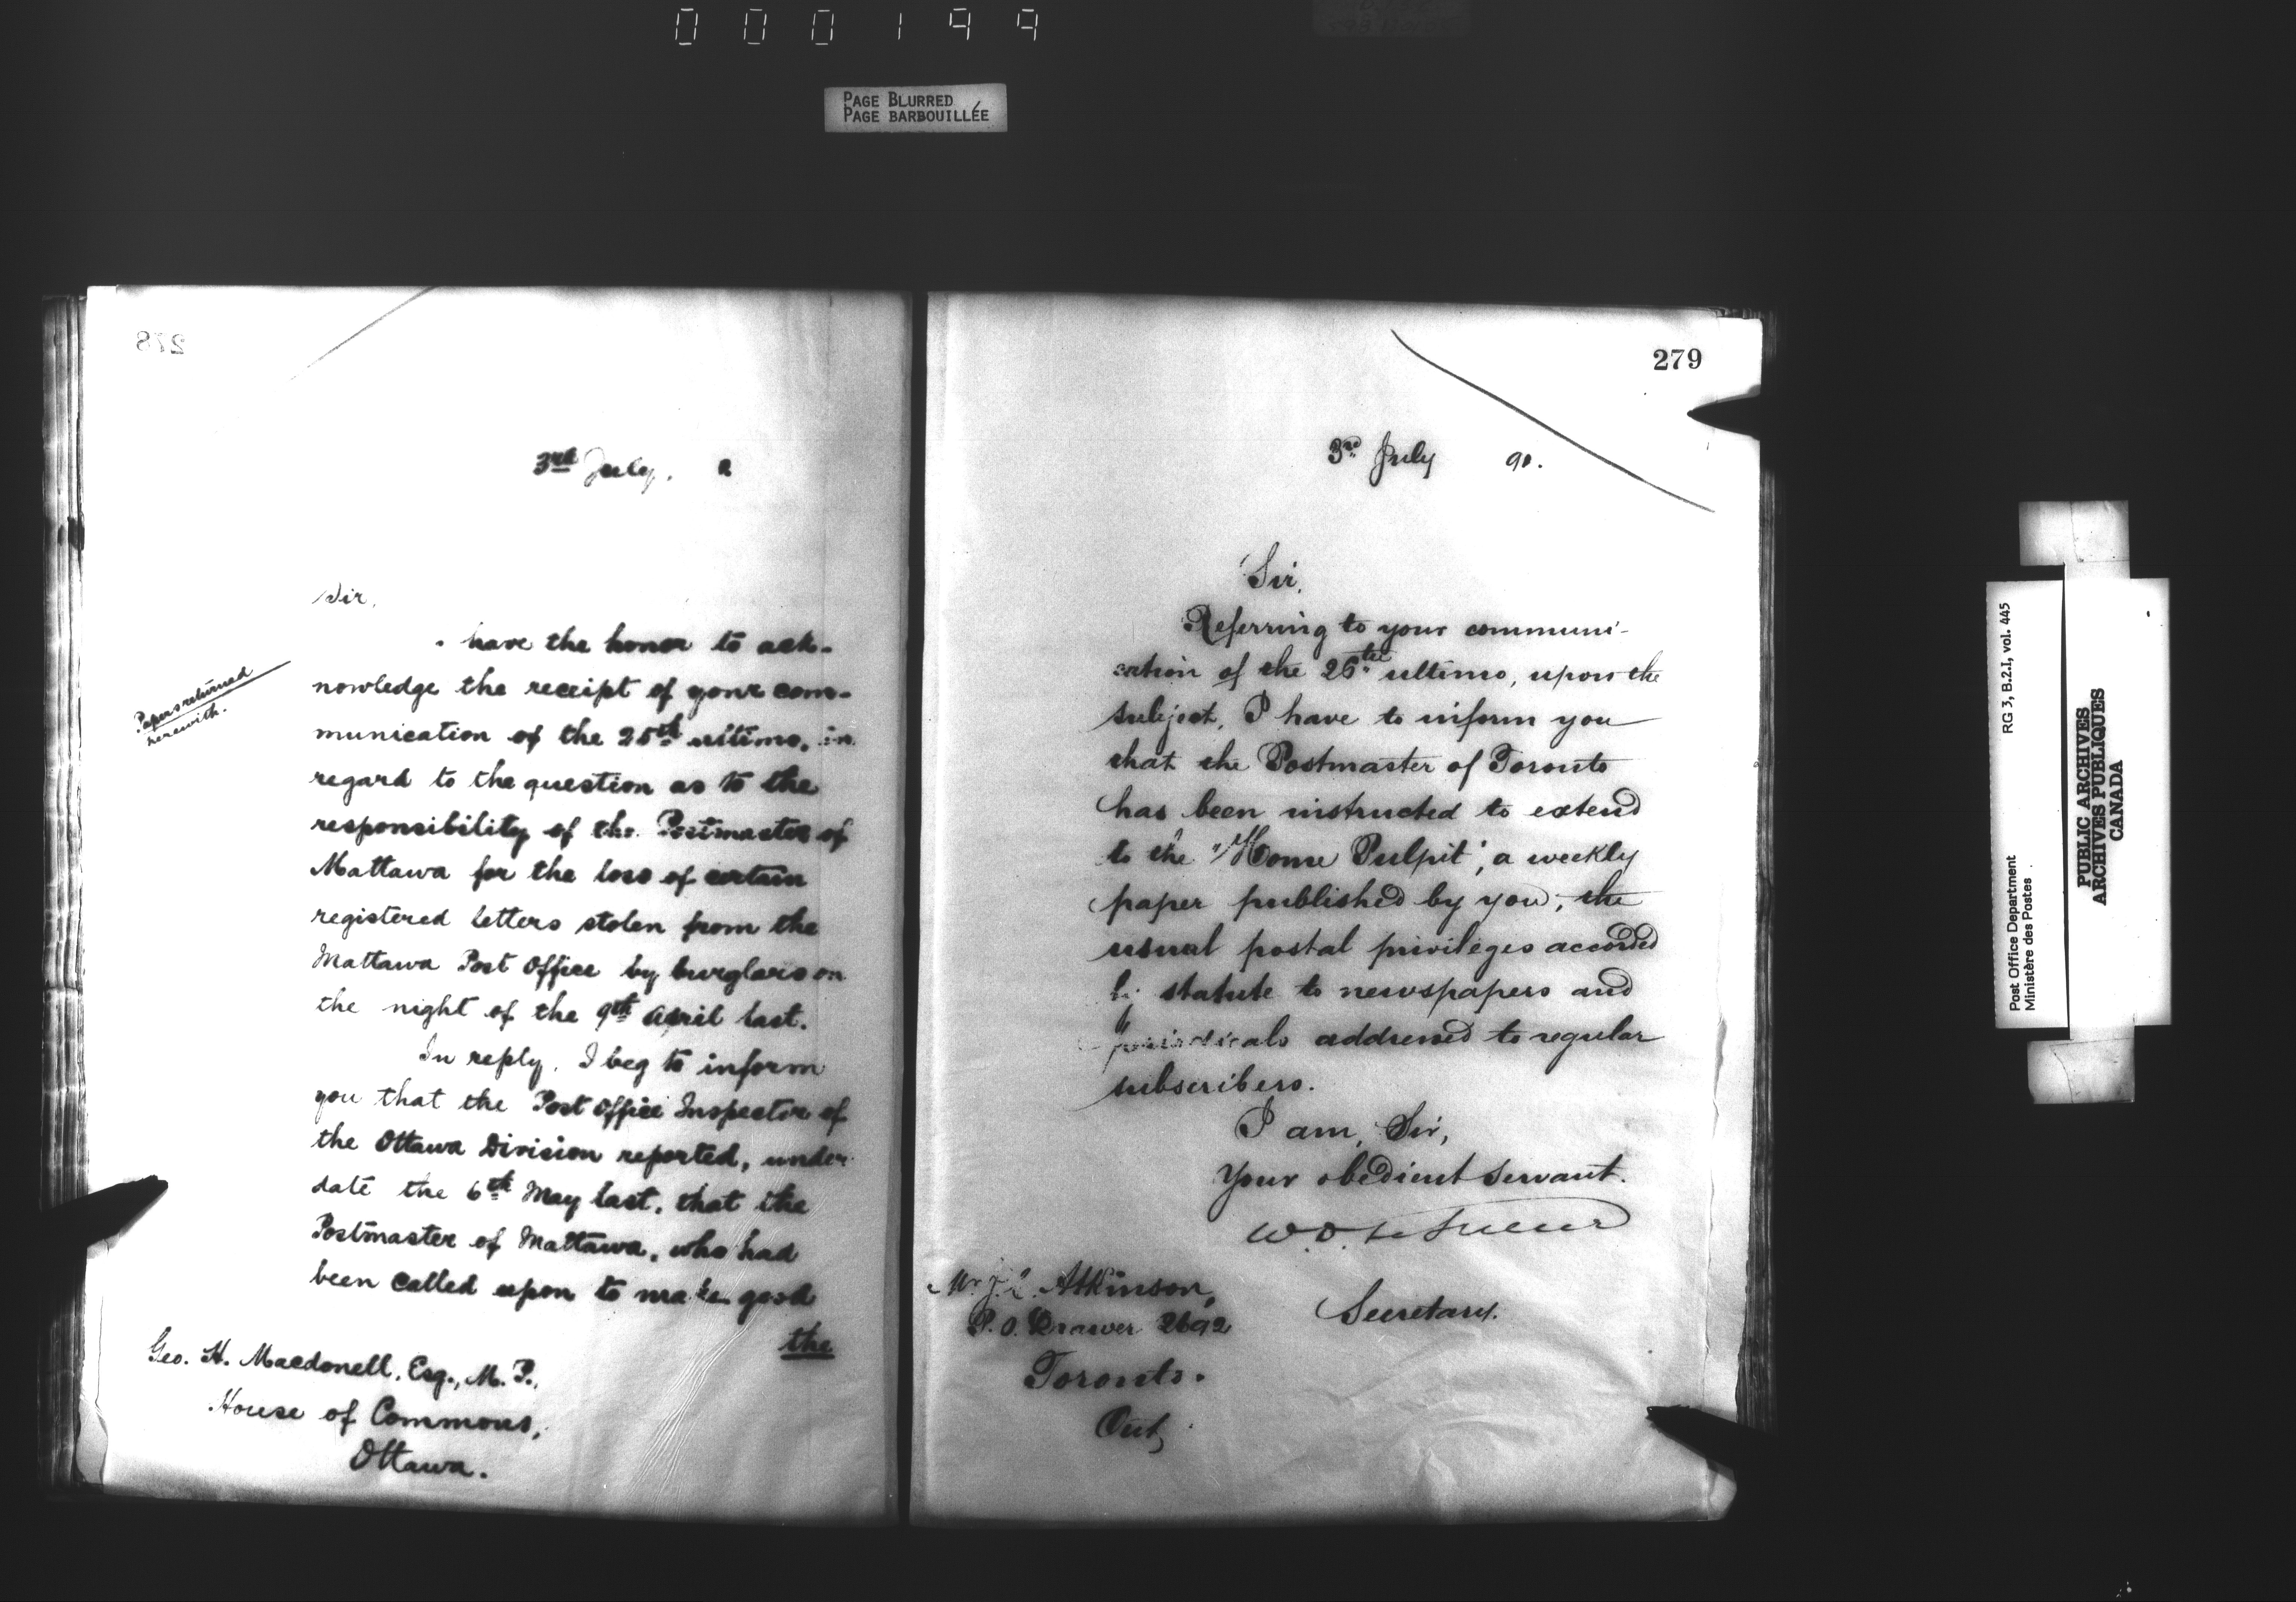 000199
PAGE BLURRED
PAGE BARBOUILLÉE
278
3rd July,
Sir,
have the honor to ack-
nowledge the receipt of your com-
munication of the 25th ultimo, in
regard to the question as to the
responsibility of the Postmaster of
Mattawa for the loss of certain
registered letters stolen from the
Mattawa Post Office by burglars on
the night of the 9th April last.
In reply, I beg to inform
you that the Post Office Inspector of
the Ottawa Division reported, under
date the 6th May last, that the
Postmaster of Mattawa, who had
been called upon to make good
the
Papers returned
herewith.
Geo. H. Macdonell, Esq., M.P.,
House of Commons,
Ottawa.
279
3rd July 90.
Sir,
Referring to your communi-
cation of the 26th ultimo, upon the
subject, I have to inform you
that the Postmaster of Toronto
has been instructed to extend
to the "Home Pulpit", a weekly
paper published by you, the
usual postal privileges accorded
by statute to newspapers and
periodicals addressed to regular
subscribers.
I am, Sir,
Your obedient servant.
W.D. LeSueur
Secretary.
Mr. J. Atkinson,
P.O. Drawer 2692
Toronto.
Ont,
Post Office Department
Ministère des Postes
RG 3, B.2.I, vol. 445
PUBLIC ARCHIVES
ARCHIVES PUBLIQUES
CANADA